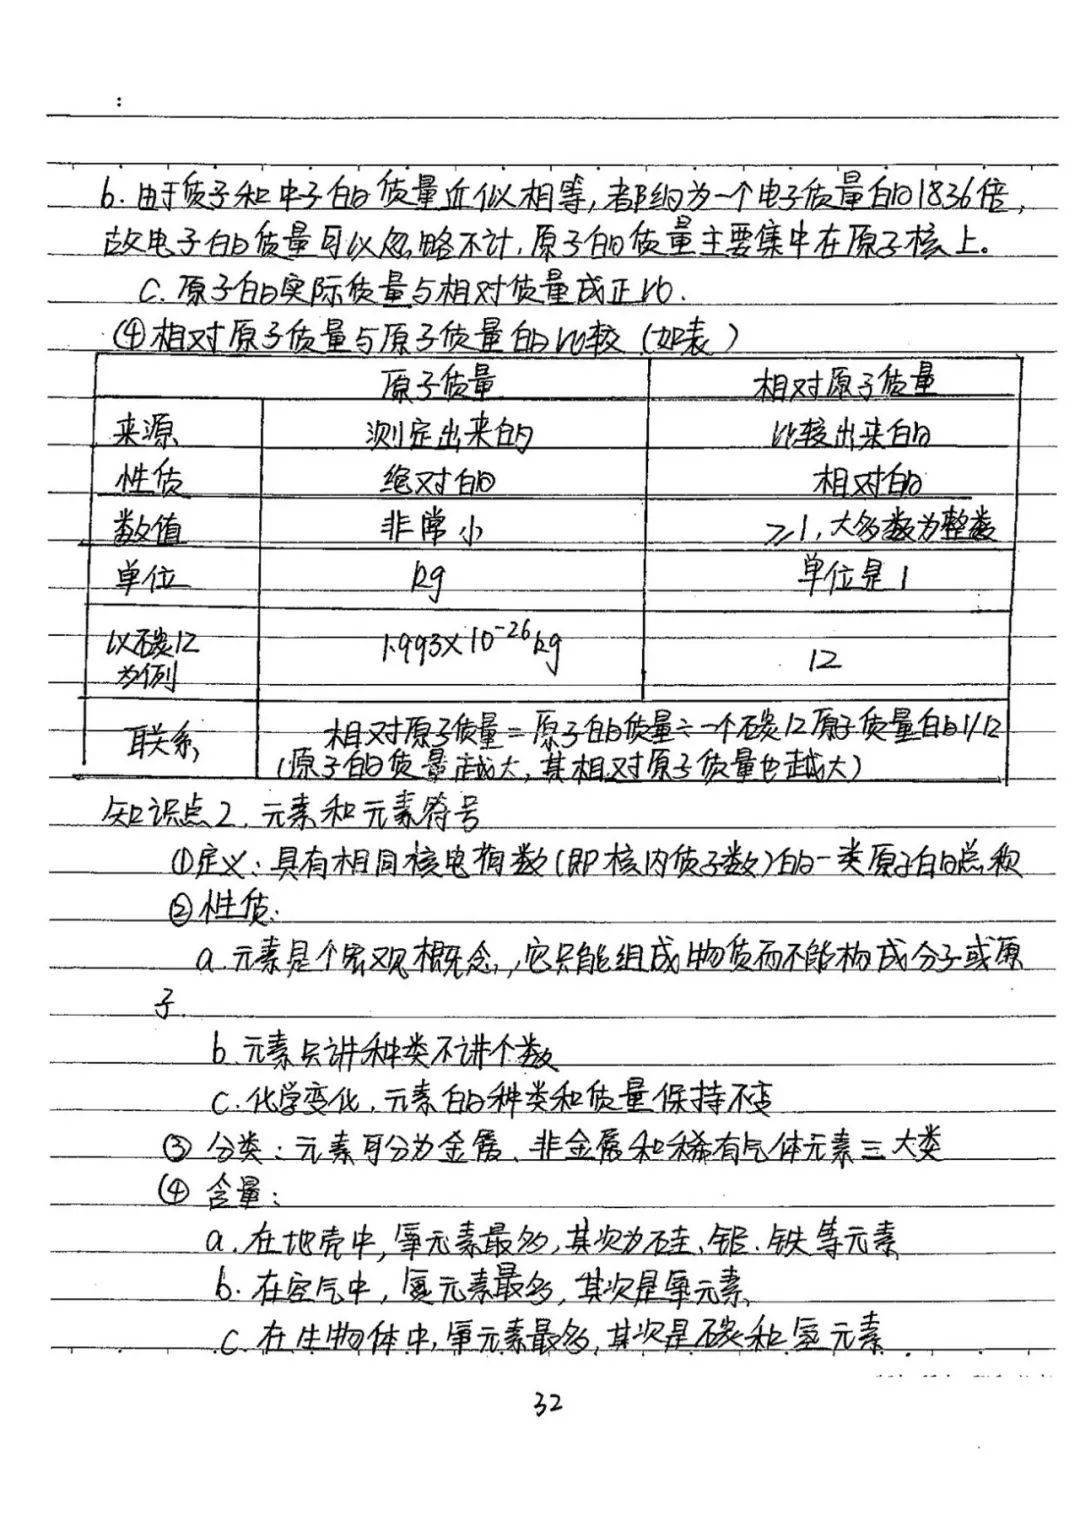 :
b. 由于质子和中子的质量近似相等,都约为一个电子质量的1836倍,
故电子的质量可以忽略不计,原子的质量主要集中在原子核上。
C. 原子的实际质量与相对质量成正比.
④相对原子质量与原子质量的比较(如表)
原子质量 相对原子质量
来源 测定出来的 比较出来的
性质 绝对的 相对的
数值 非常小 ≥1,大多数为整数
单位 kg 单位是1
以碳12 1.993×10⁻²⁶kg 12
为例
联系 相对原子质量=原子的质量÷一个碳12原子质量的1/12
(原子的质量越大,其相对原子质量也越大)
知识点2.元素和元素符号
①定义:具有相同核电荷数(即核内质子数)的一类原子的总称
②性质:
a.元素是个宏观概念,,它只能组成物质而不能构成分子或原
子.
b.元素只讲种类不讲个数
C.化学变化.元素的种类和质量保持不变
③分类:元素可分为金属、非金属和稀有气体元素三大类
④含量:
a.在地壳中,氧元素最多,其次为硅、铝.铁等元素
b.在空气中,氮元素最多,其次是氧元素
C.在生物体中,氧元素最多,其次是碳和氢元素
32